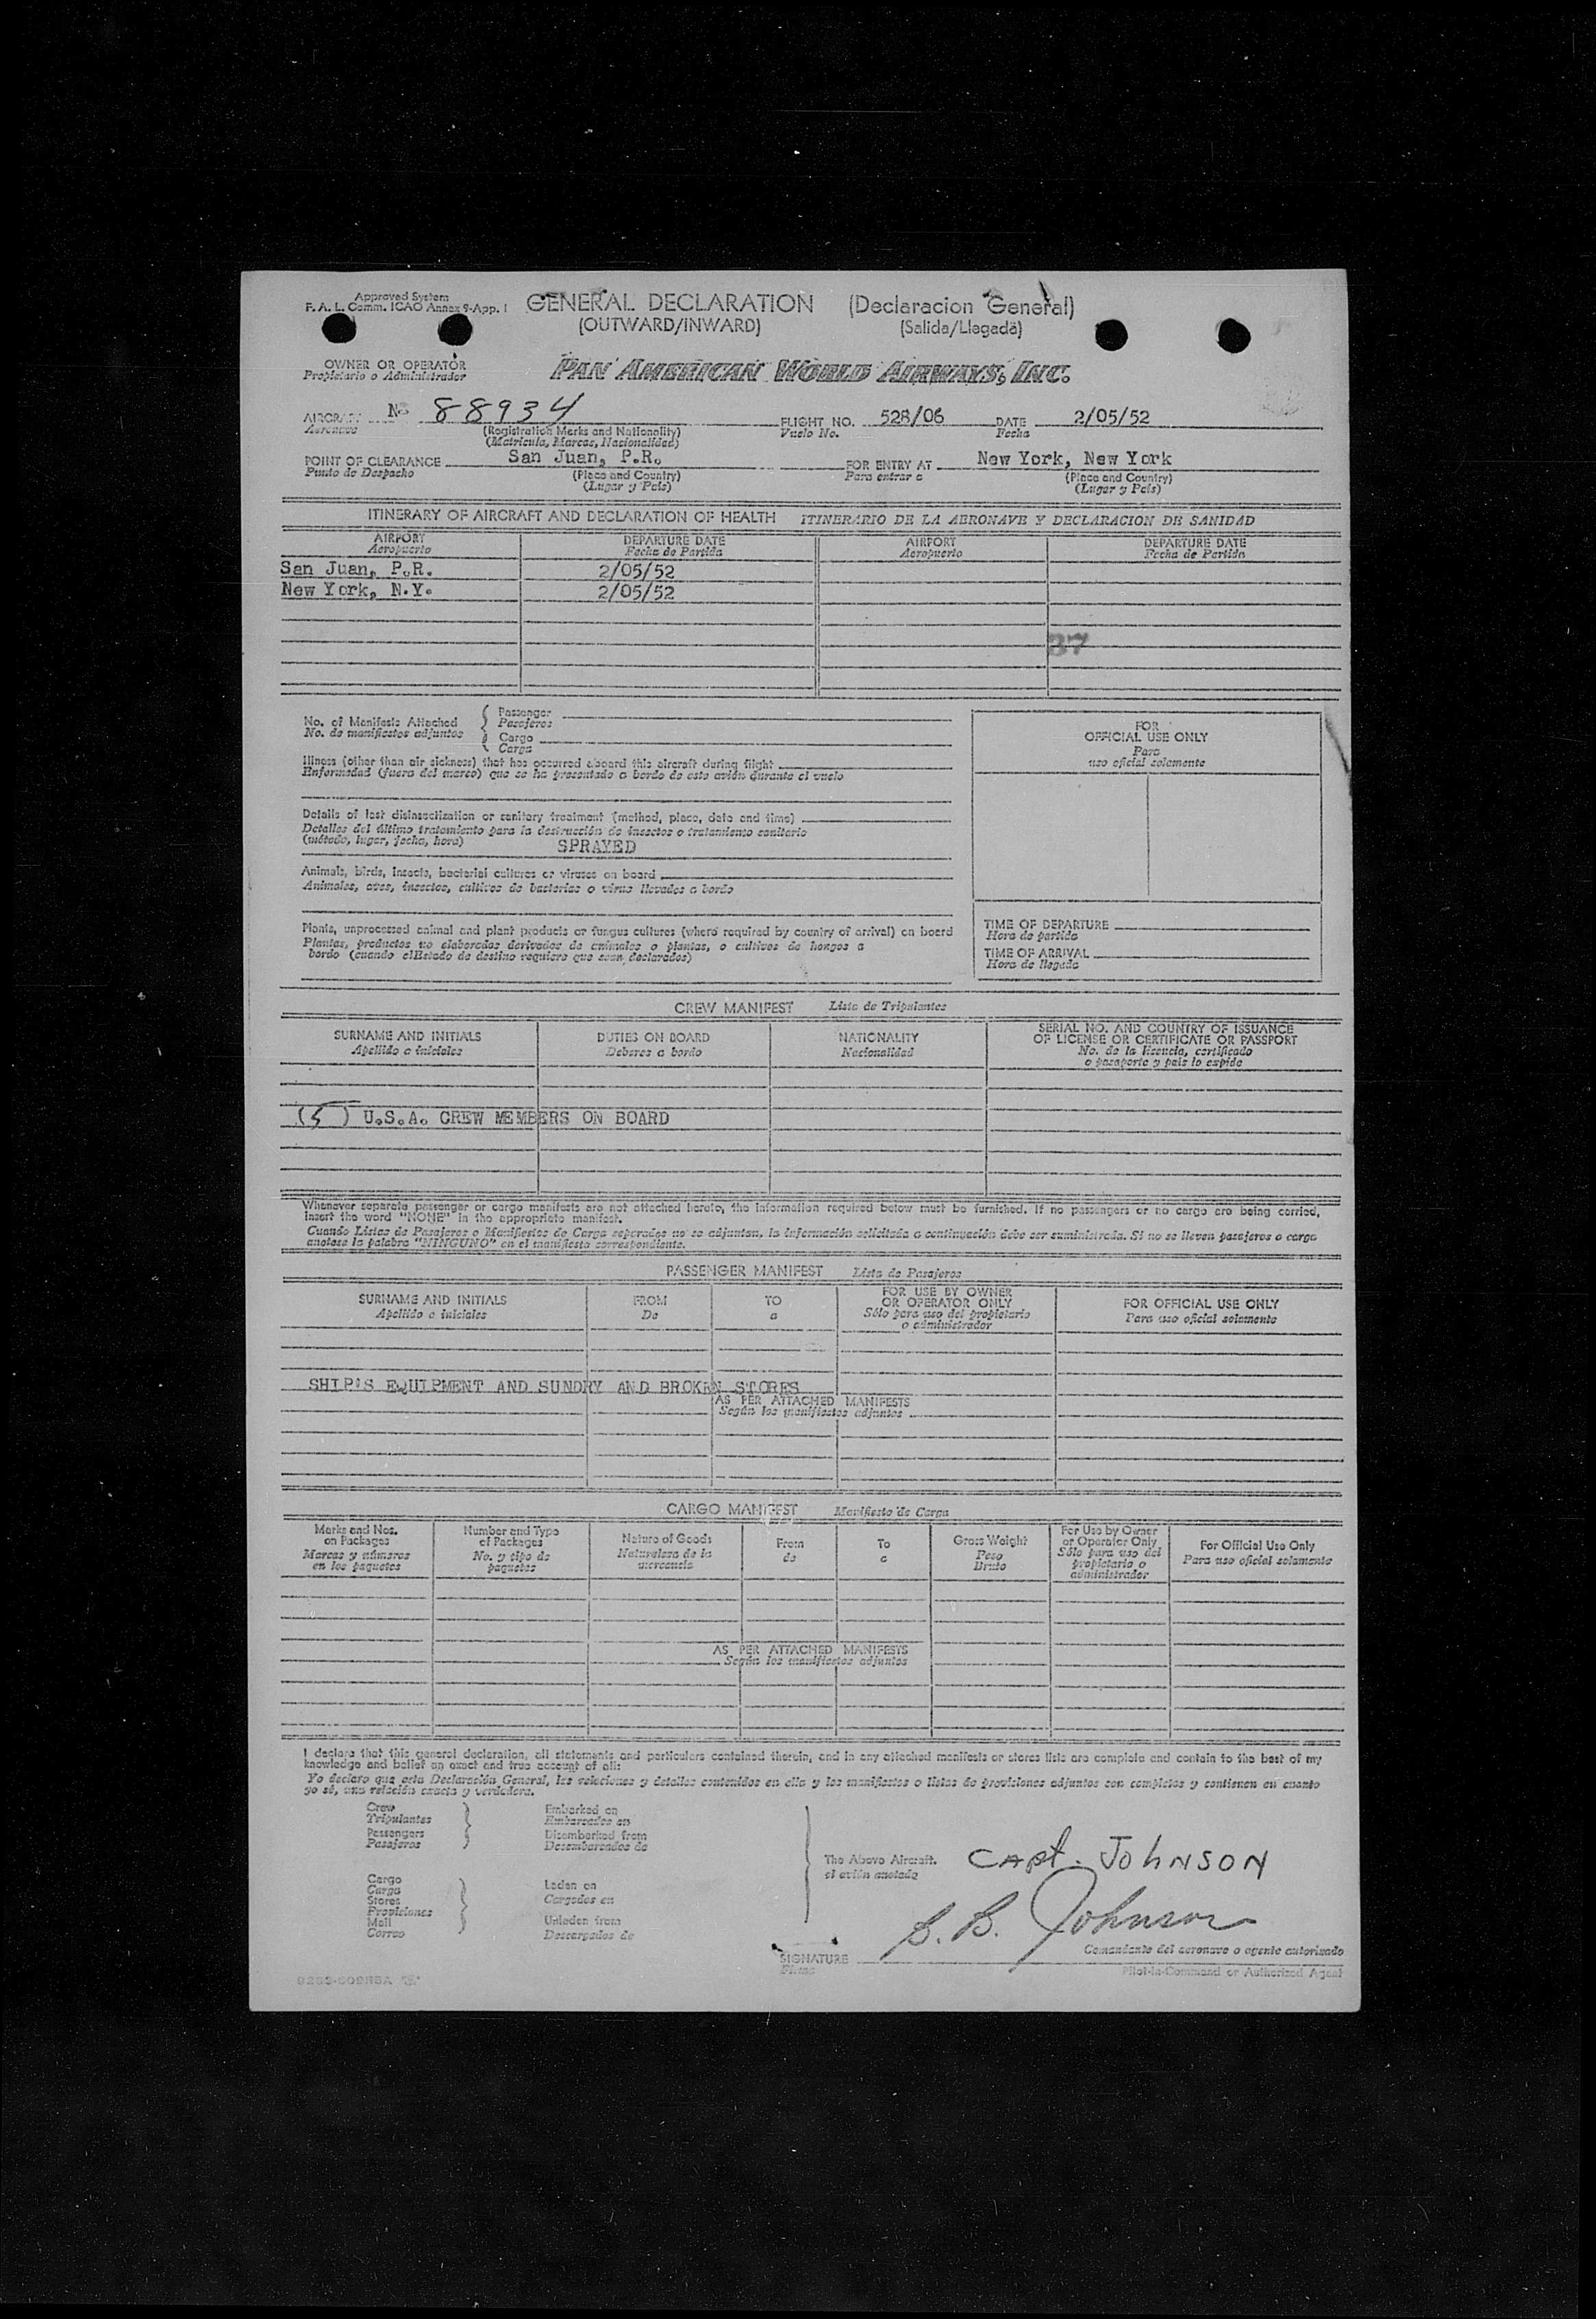 Approved System
F. A. L. Comm. ICAO Annex 9-App. I
GENERAL DECLARATION (Declaracion General)
(OUTWARD/INWARD) (Salida/Llegada)
OWNER OR OPERATOR
Propietario o Administrador
PAN AMERICAN WORLD AIRWAYS, INC.
AIRCRAFT N- 88934 FLIGHT NO. 528/06 DATE 2/05/52
Aeronave (Registration Marks and Nationality) Vuelo No. Fecha
(Matricula, Marcas, Nacionalidad)
POINT OF CLEARANCE San Juan, P.R. FOR ENTRY AT New York, New York
Punto de Despacho (Place and Country) Para entrar a (Place and Country)
(Lugar y País) (Lugar y País)
ITINERARY OF AIRCRAFT AND DECLARATION OF HEALTH ITINERARIO DE LA AERONAVE Y DECLARACION DE SANIDAD
AIRPORT DEPARTURE DATE AIRPORT DEPARTURE DATE
Aeropuerto Fecha de Partida Aeropuerto Fecha de Partida
San Juan, P.R. 2/05/52
New York, N.Y. 2/05/52
37
No. of Manifests Attached
No. de manifiestos adjuntos
Passenger
Pasajeros
Cargo
Carga
FOR
OFFICIAL USE ONLY
Para
uso oficial solamente
Illness (other than air sickness) that has occurred aboard this aircraft during flight
Enfermedad (fuera del mareo) que se ha presentado a bordo de este avión durante el vuelo
Details of last disinsectization or sanitary treatment (method, place, date and time)
Detalles del último tratamiento para la destrucción de insectos o tratamiento sanitario
(método, lugar, fecha, hora) SPRAYED
Animals, birds, insects, bacterial cultures or viruses on board
Animales, aves, insectos, cultivos de bacterias o virus llevados a bordo
Plants, unprocessed animal and plant products or fungus cultures (where required by country of arrival) on board
Plantas, productos no elaborados derivados de animales o plantas, o cultivos de hongos a
bordo (cuando el Estado de destino requiere que sean declarados)
TIME OF DEPARTURE
Hora de partida
TIME OF ARRIVAL
Hora de llegada
CREW MANIFEST Lista de Tripulantes
SURNAME AND INITIALS DUTIES ON BOARD NATIONALITY SERIAL NO. AND COUNTRY OF ISSUANCE
OF LICENSE OR CERTIFICATE OR PASSPORT
Apellido o iniciales Deberes a bordo Nacionalidad No. de la licencia, certificado
o pasaporte y país lo expide
(5) U.S.A. CREW MEMBERS ON BOARD
Whenever separate passenger or cargo manifests are not attached hereto, the information required below must be furnished. If no passengers or no cargo are being carried,
insert the word "NONE" in the appropriate manifest.
Cuando Listas de Pasajeros o Manifiestos de Carga separados no se adjuntan, la información solicitada a continuación debe ser suministrada. Si no se lleven pasajeros o carga
anotese la palabra "NINGUNO" en el manifiesto correspondiente.
PASSENGER MANIFEST Lista de Pasajeros
SURNAME AND INITIALS FROM TO FOR USE BY OWNER
OR OPERATOR ONLY FOR OFFICIAL USE ONLY
Apellido o iniciales De a Sólo para uso del propietario
o administrador Para uso oficial solamente
SHIP'S EQUIPMENT AND SUNDRY AND BROKEN STORES
AS PER ATTACHED MANIFESTS
Según los manifiestos adjuntos
CARGO MANIFEST Manifiesto de Carga
Marks and Nos.
on Packages
Marcas y números
en los paquetes
Number and Type
of Packages
No. y tipo de
paquetes
Nature of Goods
Naturaleza de la
mercancía
From
de
To
a
Gross Weight
Peso
Bruto
For Use by Owner
or Operator Only
Sólo para uso del
propietario o
administrador
For Official Use Only
Para uso oficial solamente
AS PER ATTACHED MANIFESTS
Según los manifiestos adjuntos
I declare that this general declaration, all statements and particulars contained therein, and in any attached manifests or stores lists are complete and contain to the best of my
knowledge and belief an exact and true account of all:
Yo declaro que esta Declaración General, las relaciones y detalles contenidos en ella y los manifiestos o listas de provisiones adjuntos son completos y contienen en cuanto
yo sé, una relación exacta y verdadera.
Crew
Tripulantes
Passengers
Pasajeros
Embarked on
Embarcados en
Disembarked from
Desembarcados de
Cargo
Carga
Stores
Propiciones
Mail
Correo
Laden on
Cargados en
Unladen from
Descargados de
The Above Aircraft.
el avión anotado
CAPT. JOHNSON
SIGNATURE B. B. Johnson
Firma
Comandante del aeronave o agente autorizado
Pilot-in-Command or Authorized Agent